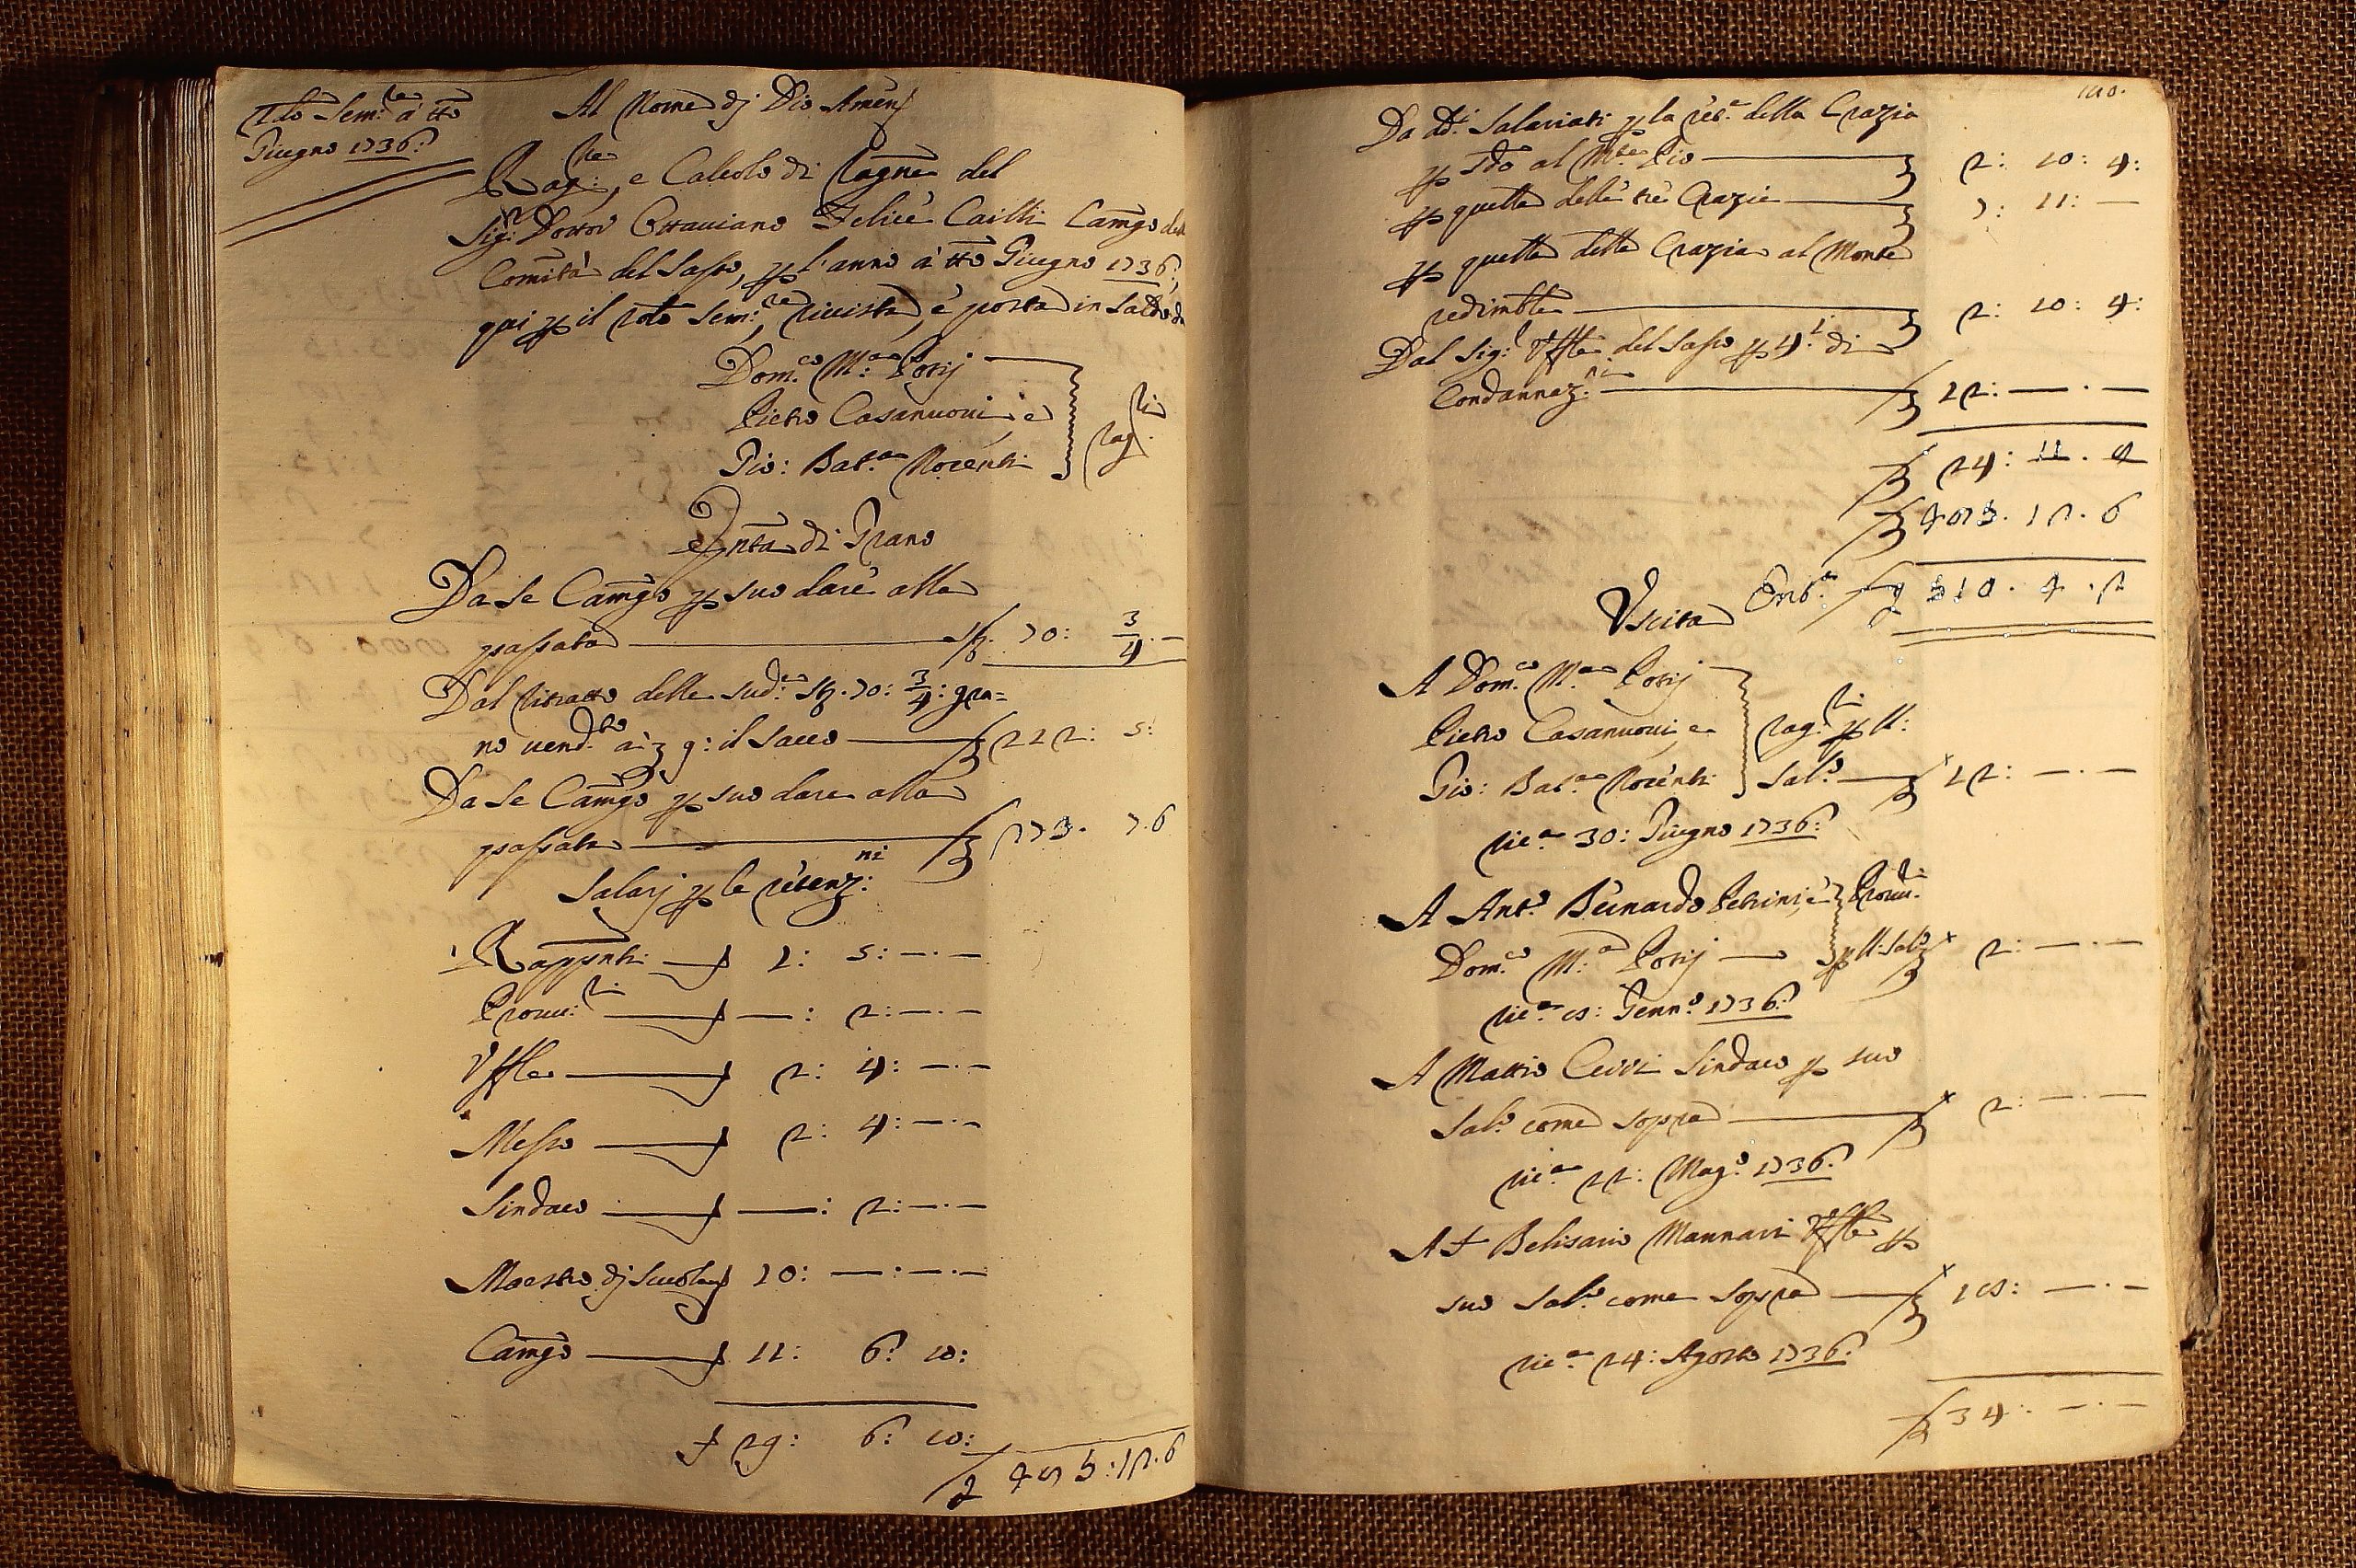 2do Sem:re à tto
Giugno 1736:
Al Nome dj Dio Amen
Rag:ne, e Calcolo di ragne del
Sig:r Dottor Ottaviano Felice Cailli Camgo del
Comità del Sasso, p l'anno à tto Giugno 1736;
qui p il 2do Sem:re, rivista, e posta in Saldo da
Dom:co M:a Porij
Pietro Casanuovi, e
Gio: Bat:a Nocenti
rag:ri
Entta di Grano
Da Se Camgo p suo dare alla
passata st. 70: 3/4 . —
Dal ritratto delle sud:e st. 70: 3/4: gra=
no vend:to à 3 9: il Sacco 212: 5:
Da Se Camgo p suo dare alla
passata 273. 7. 6
Salarj p le ritenz:ni
Rappnti 1: 5: — . —
Prouu:ri — : 2: — . —
Uffle 2: 4: — . —
Messo 2: 4: — . —
Sindaco — : 2: — . —
Maestro dj Scuola 10: — : — . —
Camgo 11: 6: 10:
29: 6: 10:
485: 12. 6
Da dd:i Salariati p la rit:e della Crazia
p sdo al M:te Pio 2: 10: 4:
p quella delle tre Crazie 7: 11: —
p quella della Crazia al Monte
redimble 2: 10: 4:
Dal Sig:r Uffle del Sasso p 4:i di
Condannaz:ni 12: — . —
24: 11.
485. 12. 6
Ent:a 510. 4. 2
Uscita
A Dom:co M:a Porij
Pietro Casanuoui, e
Gio: Bat:a Nocenti
rag:ri p ll:
Sal:o 12: — . —
ric:a 30: Giugno 1736:
A Ant:o Bernardo Petrini, e
Prouu:ri
Dom:co M:a Porij — p ll: Sal:o 2: — . —
ric:a 8: Genn:o 1736:
A Mattio Cerri Sindaco p suo
Sal:o come sopra 2: — . —
ric:a 22: Mag:o 1736:
A Belisario Mannari Uffle p
suo Sal:o come sopra 18: — . —
ric:a 24: Agosto 1736:
34: — . —